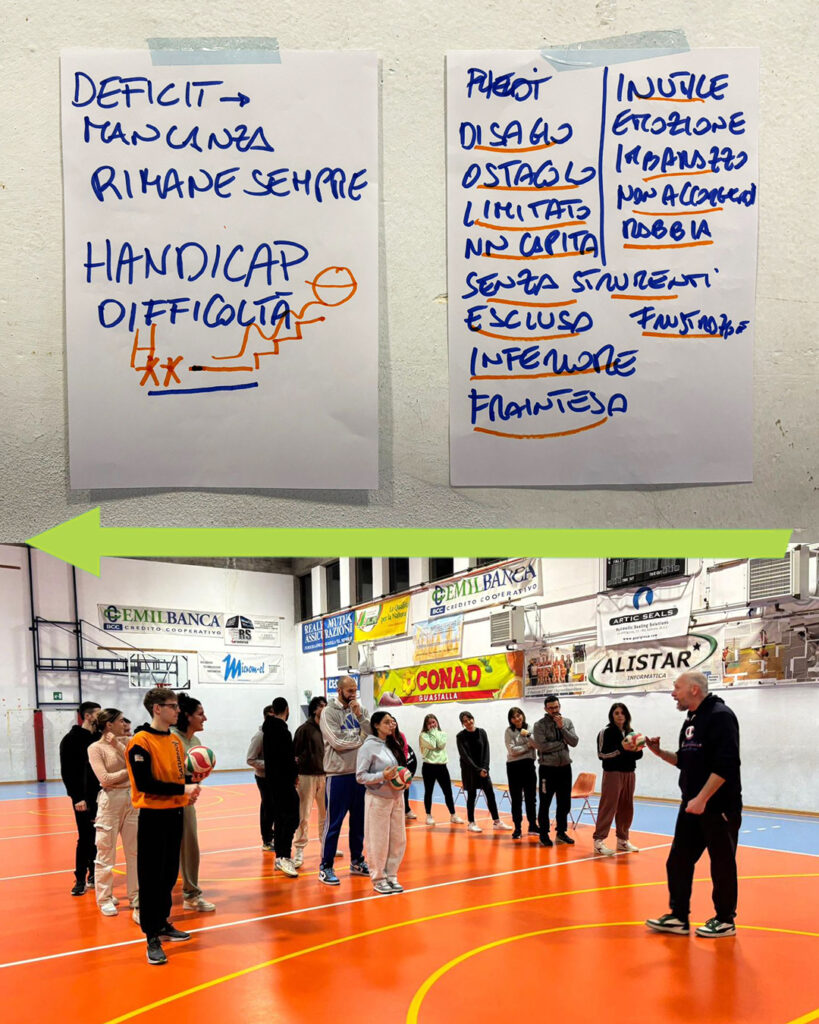 DEFICIT →
MANCANZA
RIMANE SEMPRE
HANDICAP
DIFFICOLTÀ
DISAGIO
OSTACOLO
LIMITATO
NN CAPITA
SENZA STRUMENTI
ESCLUSA
INFERIORE
FRAINTESA
INUTILE
EMOZIONE
IMBARAZZO
RABBIA
FRUSTRAZIONE
EMILBANCA
BCC CREDITO COOPERATIVO
RS
Microm-el
REALE MUTUA
ASSICURAZIONI
La Qualità
per la Natura
EMILBANCA
BCC CREDITO COOPERATIVO
CONAD
GUASTALLA
ARTIC SEALS
ALISTAR
INFORMATICA